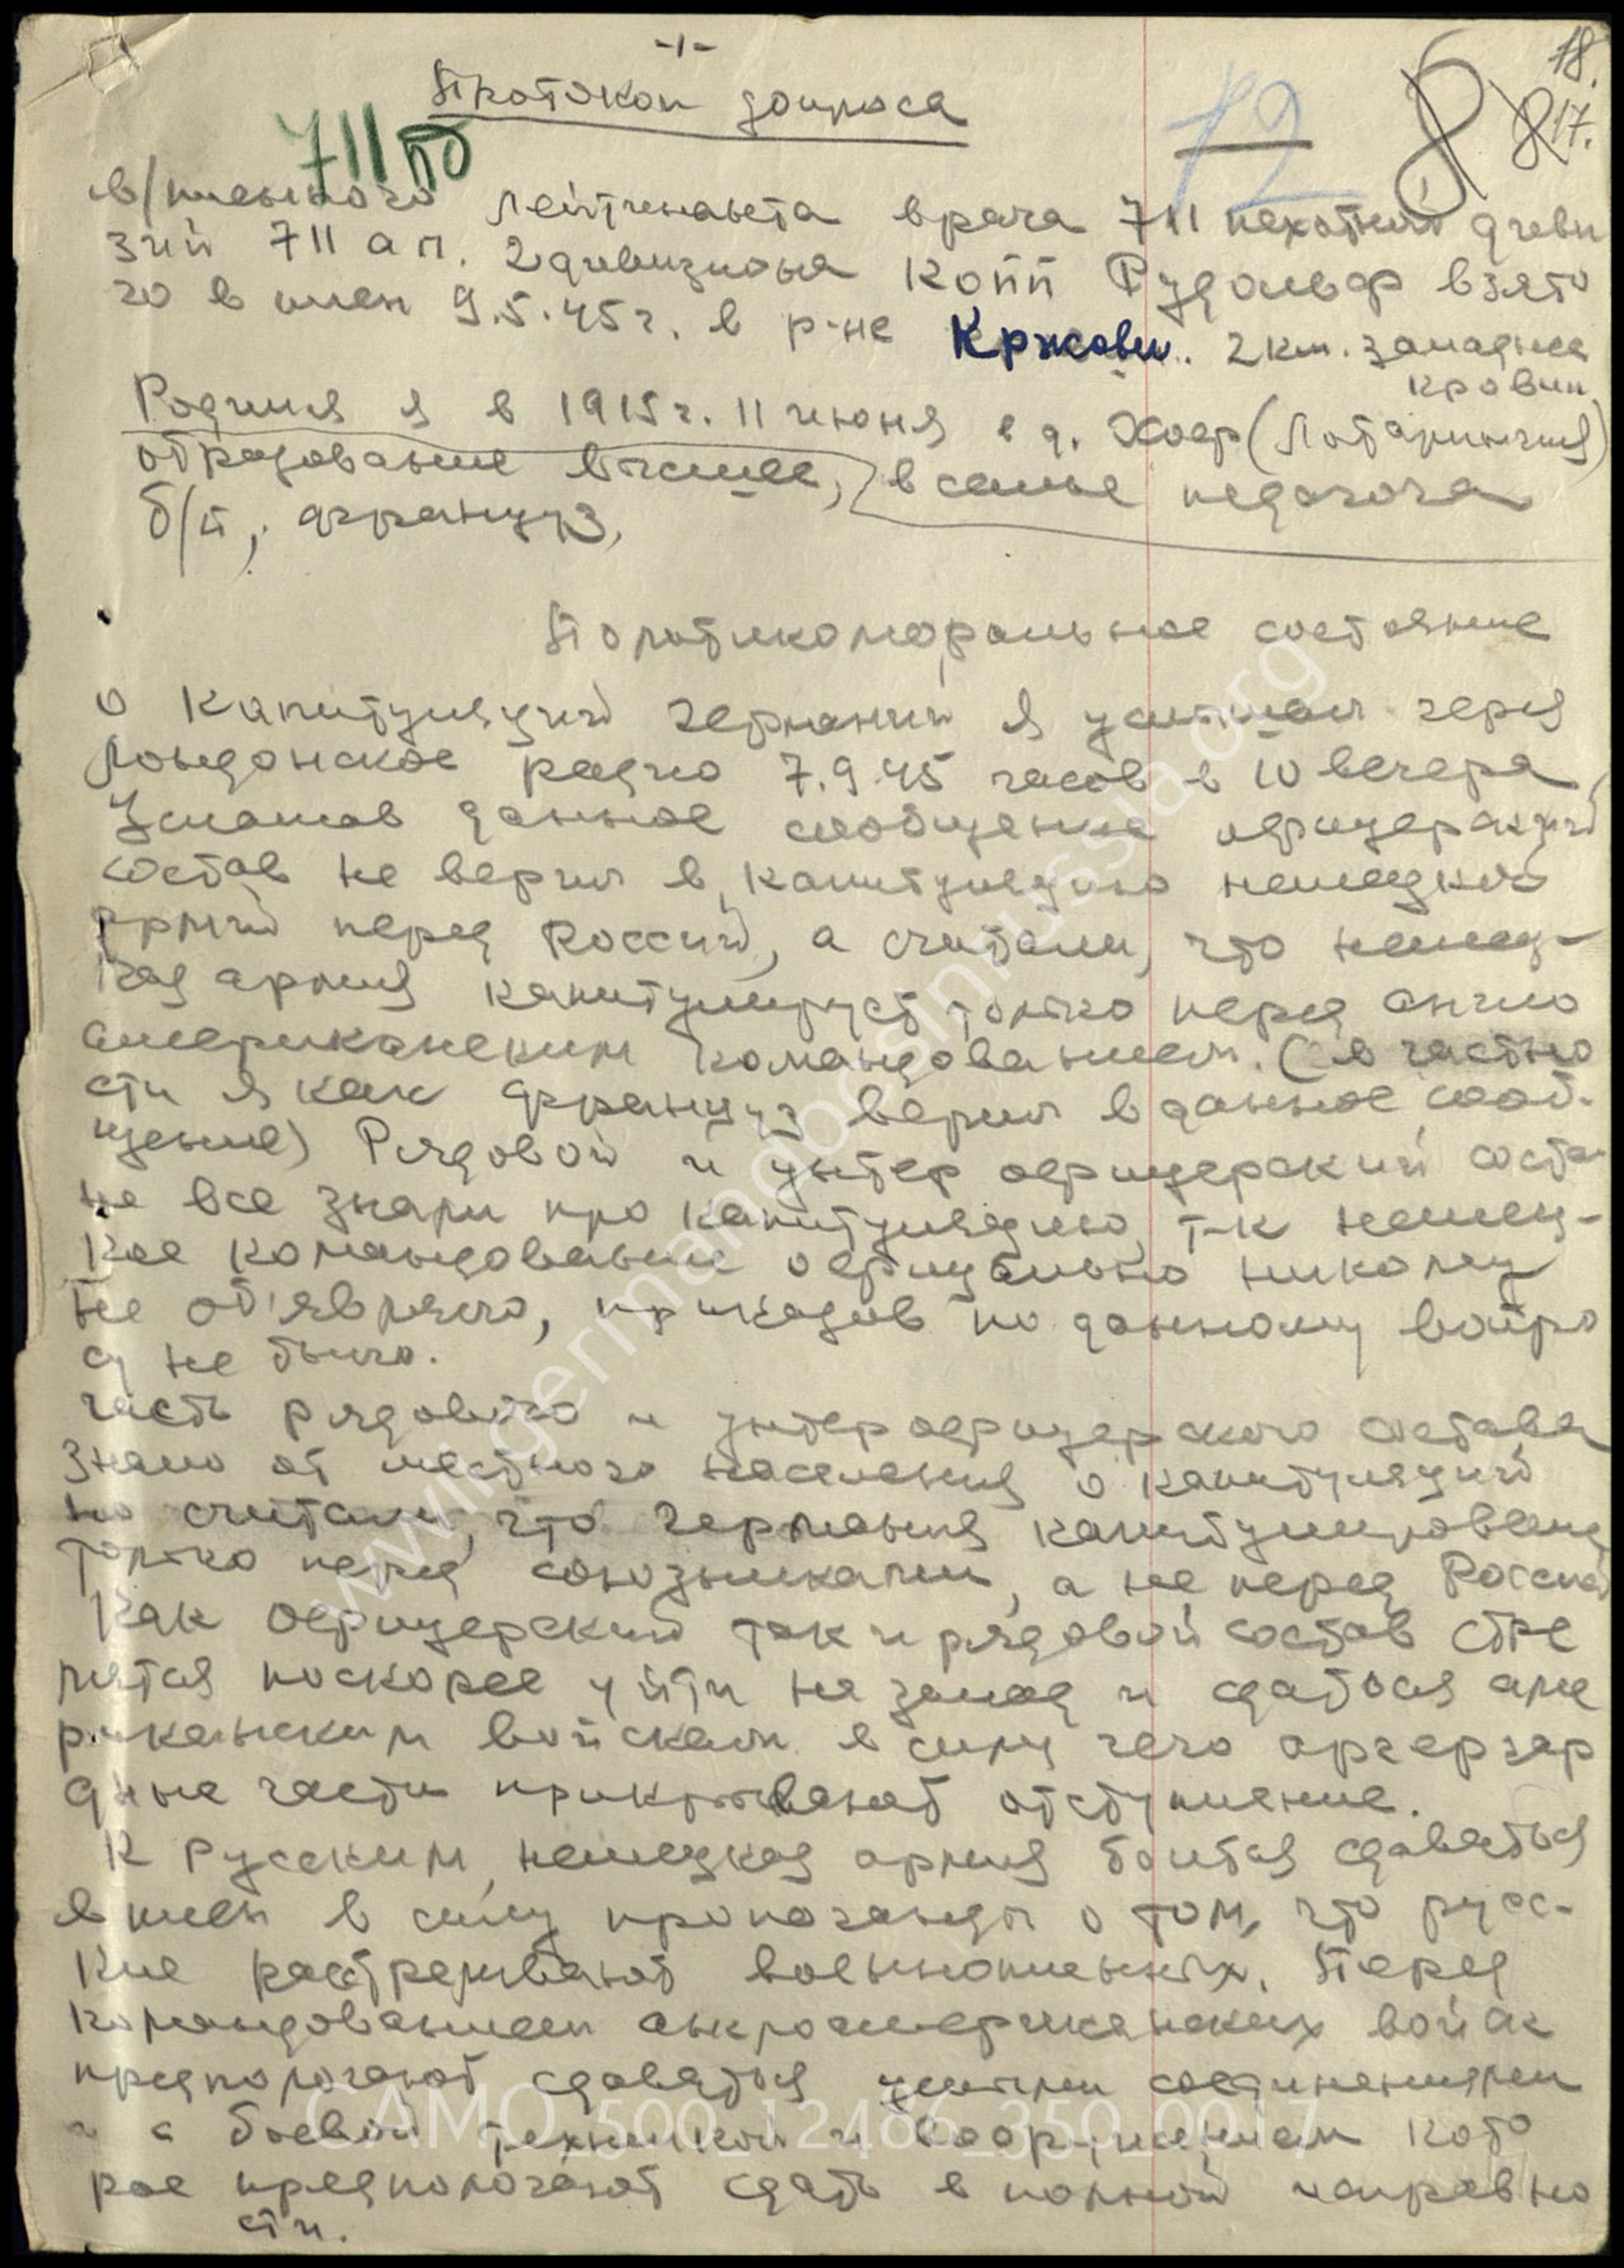 -1-
Протокол допроса
711 пд
72
8
18.
8 17.
в/пленного лейтенанта врача 711 пехотной диви
зии 711 ап. 2 дивизиона Копп Рудольф взято
го в плен 9.5.45 г. в р-не Кржови. 2 км. западнее
кровин
Родился я в 1915 г. 11 июня в д. Хоер (Лотарингия)
образование высшее, в семье педагога
б/п, француз,
Политикоморальное состояние
о капитуляций германий я услышал через
Лондонское радио 7.9.45 часов в 10 вечера
Услышав данное сообщение офицерский
состав не верил в капитуляцию немецкой
армий перед Россий, а считали, что немец-
кая армия капитулирует только перед англо
американским командованием. (в частно
сти я как француз верил в данное сооб-
щение) Рядовой и унтер офицерский соста
не все знали про капитуляцию, т-к немец-
кое командование официально никому
не об'являло, приказов по данному вопро
су не было.
часть рядового и унтерофицерского состава
знало от местного населения о капитуляций
но считали, что германия капитулировала
только перед союзниками, а не перед Россий
Как офицерский так и рядовой состав стре
мятся поскорее уйти на запад и сдаться аме
риканским войскам в силу чего арьергар
дные части прикрывают отступление.
К русским немецкая армия боится сдаваться
в плен в силу пропаганды о том, что русс-
кие расстреливают военнопленных. Перед
командованием англоамериканских войск
предпологают сдаваться целыми соединениями
и с боевой техникой и вооружением кото
рое предпологают сдать в полной исправно
сти.
www.germandocsinrussia.org
CAMO_500_12486_350_0017